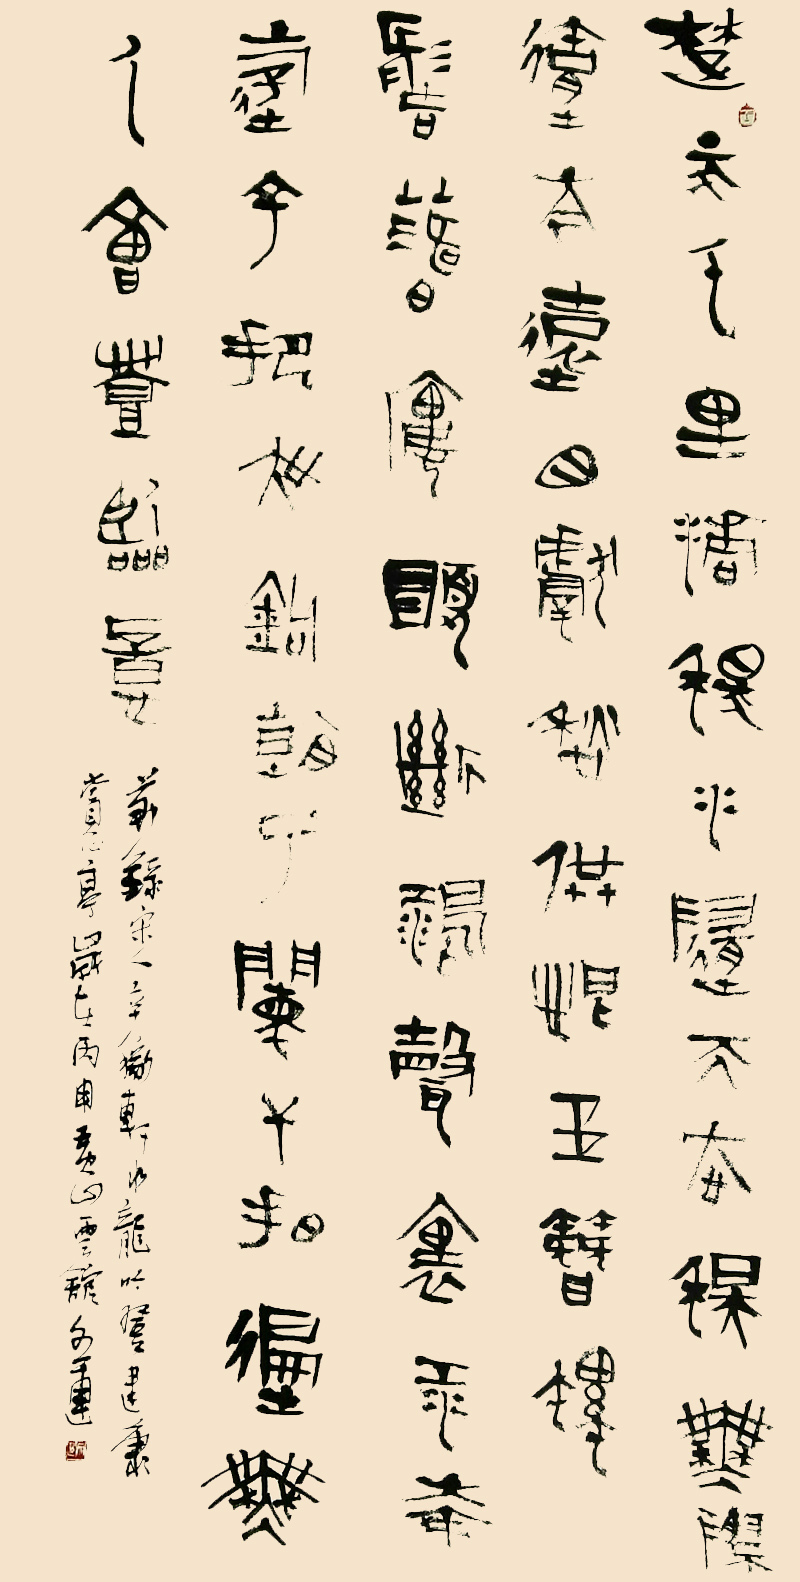 楚天千里清秋水隨天去秋無際
遙岑遠目獻愁供恨玉簪螺
髻落日樓頭斷鴻聲裏江南
遊子把吳鉤看了闌干拍遍無
人會登臨意
錄宋人辛稼軒水龍吟登建康
賞心亭歲在丙申黃山雲